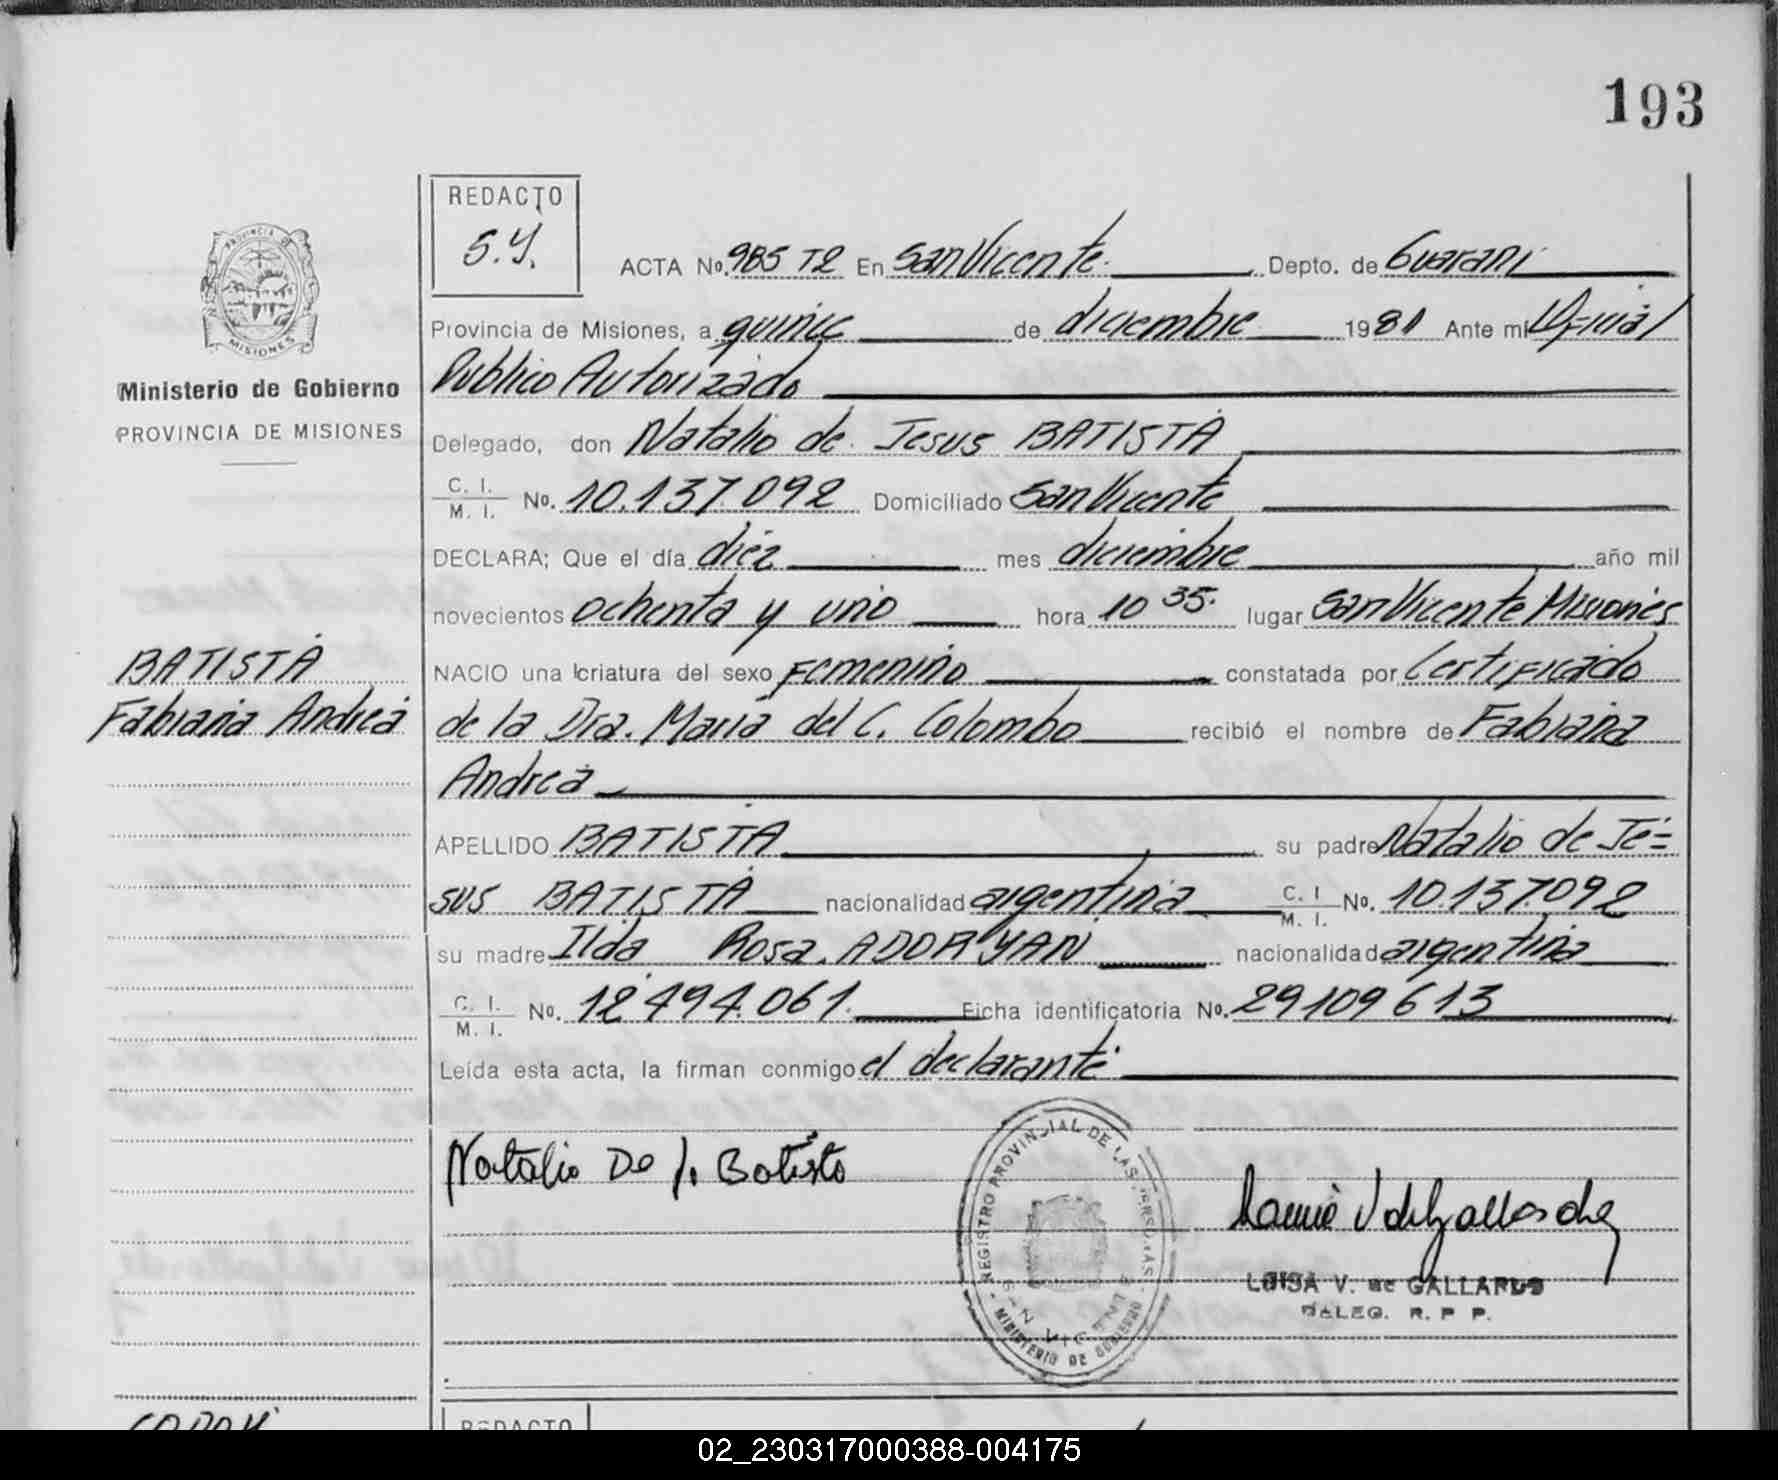 193
REDACTO
S.Y.
PROVINCIA DE
MISIONES
Ministerio de Gobierno
PROVINCIA DE MISIONES
ACTA No. 985 T2 En San Vicente Depto. de Guarani
Provincia de Misiones, a quince de diciembre 1981 Ante mi Oficial
Publico Autorizado
Delegado, don Natalio de Jesus BATISTA
C. I.
M. I. No. 10.137.092 Domiciliado San Vicente
DECLARA; Que el día diez mes diciembre año mil
novecientos ochenta y uno hora 10 35. lugar San Vicente Misiones
BATISTA
Fabiana Andrea
NACIO una criatura del sexo femenino constatada por Certificado
de la Dra. Maria del C. Colombo recibió el nombre de Fabiana
Andrea
APELLIDO BATISTA su padre Natalio de Je=
sus BATISTA nacionalidad argentina C. I
M. I. No. 10.137.092
su madre Ilda Rosa ADORYAN nacionalidad argentina
C. I.
M. I. No. 12.494.061. Ficha identificatoria No. 29109613
Leída esta acta, la firman conmigo el declarante
Natalio De J. Batista
REGISTRO PROVINCIAL DE LAS PERSONAS
SAN VICENTE
MINISTERIO DE GOBIERNO
LUISA V. de GALLARDO
DELEG. R. P. P.
REDACTO
02_230317000388-004175